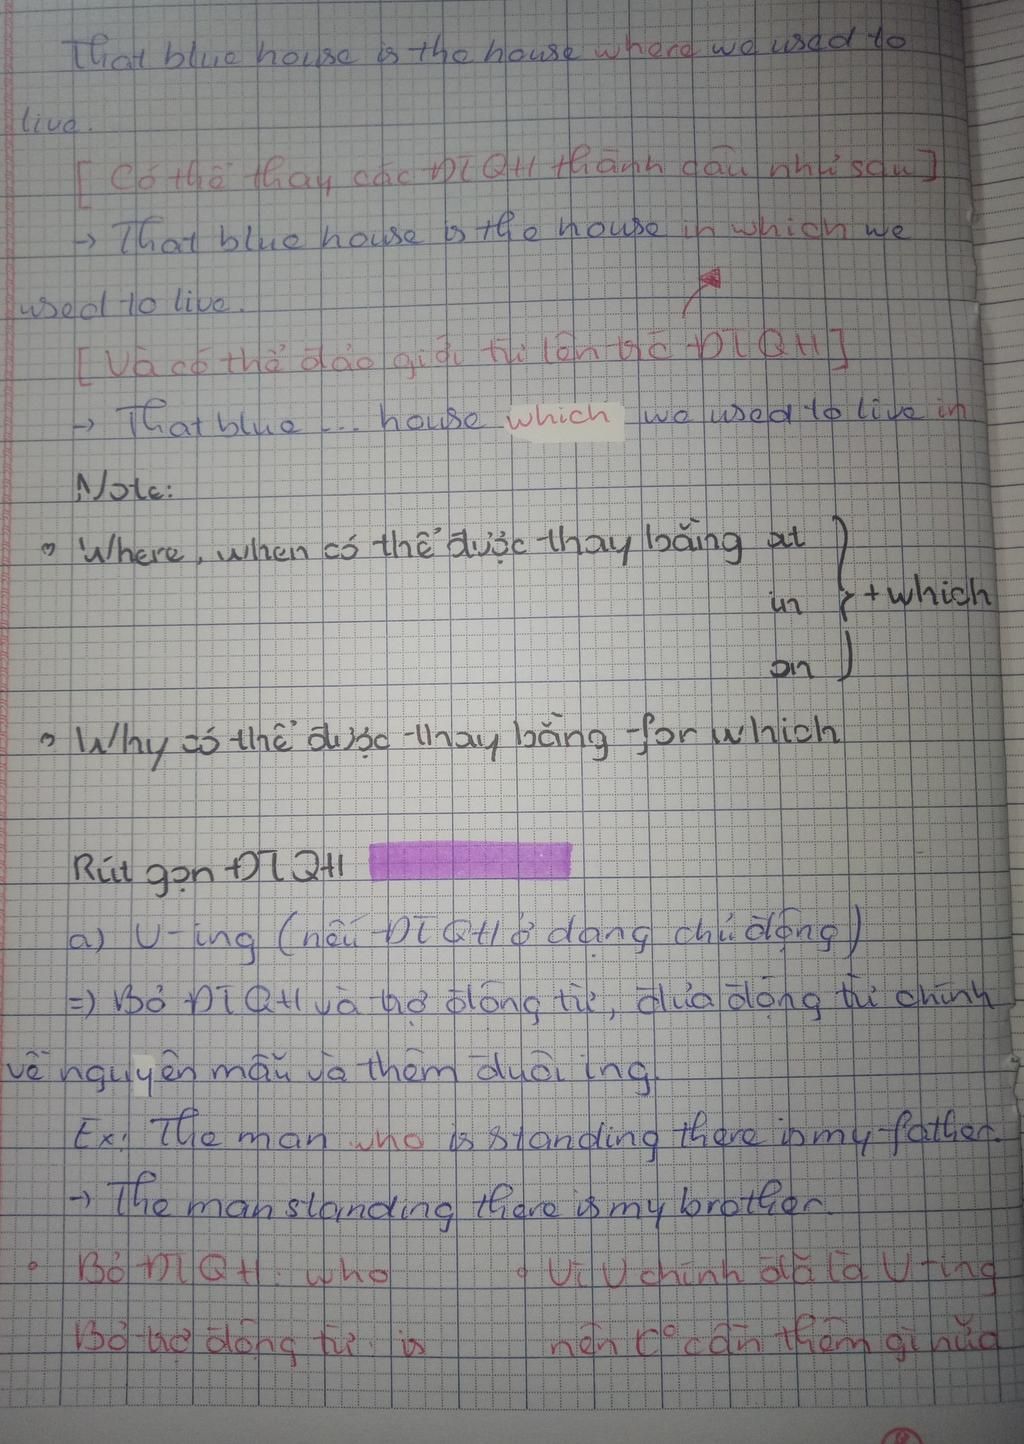 That blue house is the house where we used to
live.
[ Có thể thay các ĐTQH thành dấu như sau ]
→ That blue house is the house in which we
used to live.
[ Và có thể đảo giới từ lên trc ĐTQH ]
→ That blue ... house which we used to live in
Note:
• Where, when có thể được thay bằng at
in } + which
on
• Why có thể được thay bằng for which
Rút gọn ĐTQH
a) V-ing (nếu ĐTQH ở dạng chủ động)
=) Bỏ ĐTQH và trợ động từ, đưa động từ chính
về nguyên mẫu và thêm đuôi ing
Ex: The man who is standing there is my father.
→ The man standing there is my brother.
• Bỏ ĐTQH: who • Vì V chính đã là V-ing
Bỏ trợ động từ: is nên k° cần thêm gì nữa